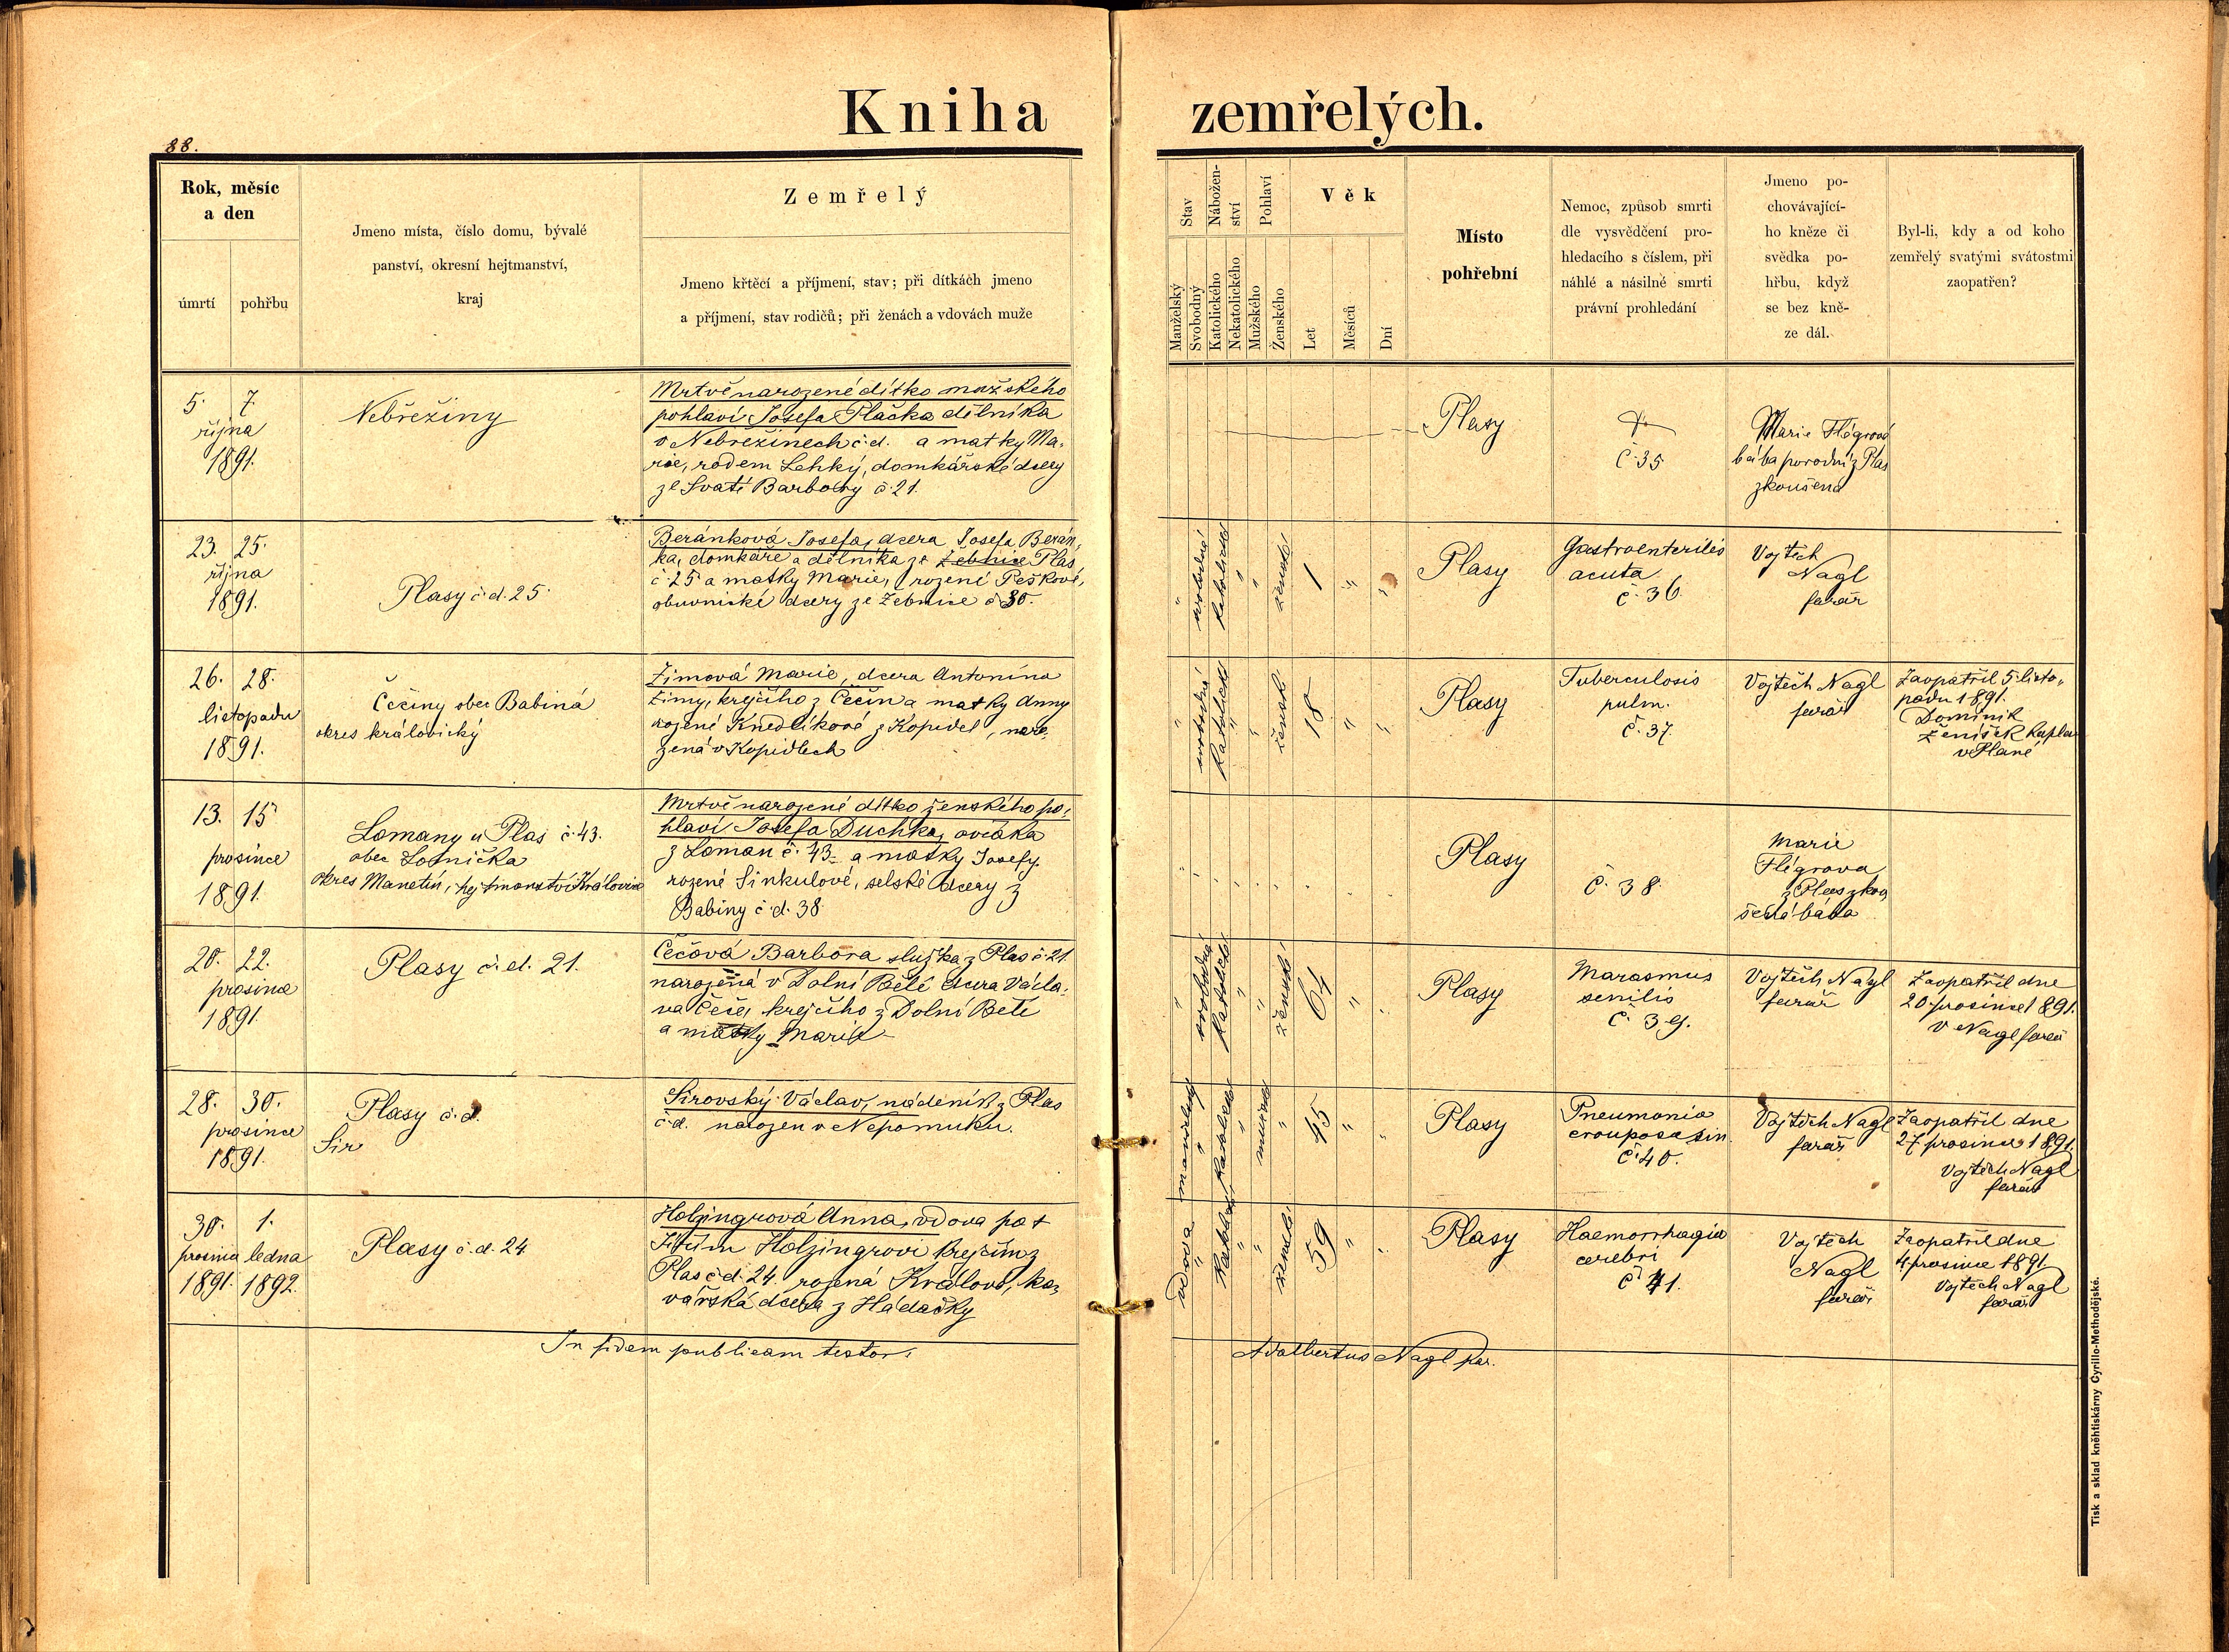 Kniha zemřelých.
88.
Rok, měsíc
a den
úmrtí
pohřbu
Jmeno místa, číslo domu, bývalé
panství, okresní hejtmanství,
kraj
Zemřelý
Jmeno křtěcí a příjmení, stav; při dítkách jmeno
a příjmení, stav rodičů; při ženách a vdovách muže
Stav
Nábožen-
ství
Pohlaví
Věk
Manželský
Svobodný
Katolického
Nekatolického
Mužského
Ženského
Let
Měsíců
Dní
Místo
pohřební
Nemoc, způsob smrti
dle vysvědčení pro-
hledacího s číslem, při
náhlé a násilné smrti
právní prohledání
Jmeno po-
chovávající-
ho kněze či
svědka po-
hřbu, když
se bez kně-
ze dál.
Byl-li, kdy a od koho
zemřelý svatými svátostmi
zaopatřen?
5. 7.
října
1891.
Nebřežiny
Mrtvě narozené dítko mužského
pohlaví Josefa Plačka dělníka
v Nebřežinech č.d. a matky Ma-
rie, rodem Lehký, domkářské dcery
ze Svaté Barbory č. 21.
Plasy
č. 35
Marie Flégrová
bába porodní z Plas
zkoušená
23. 25.
října
1891.
Plasy č.d. 25
Beránková Josefa, dcera Josefa Berán-
ka, domkáře a dělníka ze Žebnice Plas
č. 25 a matky Marie, rozené Peškové,
obuvnické dcery ze Žebnice č 30.
" svobodná katolická " " ženské 1 " "
Plasy
Gastroenteritis
acuta
č. 36.
Vojtěch
Nagl
farář
26. 28.
listopadu
1891.
Čečiny obec Babiná
okres králövický
Zimová Marie, dcera Antonína
Zimy, krejčího z Čečin a matky Anny
rozené Knedlíkové z Kopidel, naro-
zená v Kopidlech
" svobodná katolické " " ženské 18 " "
Plasy
Tuberculosis
pulm.
č. 37.
Vojtěch Nagl
farář
Zaopatřil 5. listo-
padu 1891.
Dominik
Ženíšek kaplan
v Plané
13. 15
prosince
1891.
Lomany u Plas č. 43.
obec Lomnička
okres Manetín, hejtmanství Královice
Mrtvě narozené dítko ženského po-
hlaví Josefa Duchka, ovčáka
z Loman č. 43 a matky Josefy
rozené Sinkulové, selské dcery z
Babiny č.d. 38
Plasy
č. 38.
Marie
Flégrova
z Plas zkou-
šená bába
20. 22.
prosince
1891.
Plasy č.d. 21.
Čečová Barbora služka z Plas č. 21
narozená v Dolní Bělé dcera Václa-
va Čeče, krejčího z Dolní Belé
a matky Marie
" svobodná katolické " " ženské 64 " "
Plasy
Marasmus
senilis
č. 39.
Vojtěch Nagl
farář
Zaopatřil dne
20. prosince 1891.
V Nagl farář
28. 30.
prosince
1891.
Plasy č.d.
Sir
Sirovský Václav, nádeník z Plas
č.d. narozen v Nepomuku.
manželský " katolické " mužské " 45 " "
Plasy
Pneumonia
crouposa sin.
č. 40.
Vojtěch Nagl
farář
Zaopatřil dne
27 prosince 1891.
Vojtěch Nagl
farář
30. 1.
prosince ledna
1891. 1892.
Plasy č.d. 24
Holzingrová Anna, vdova po †
Holzingrovi krejčím z
Plas č.d. 24. rozená Králová, ko-
vářská dcera z Hádačky
vdova " " " ženské 59 " "
Plasy
Haemorrhagia
cerebri
č 41.
Vojtěch
Nagl
farář
Zaopatřil dne
4 prosince 1891.
Vojtěch Nagl
farář
In fidem publicam testor: Adalbertus Nagl par.
Tisk a sklad kněhtiskárny Cyrillo-Methodějské.